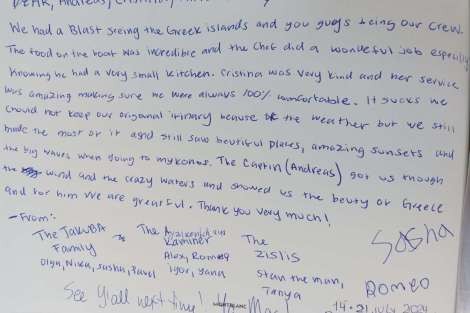 DEAR, Andreas,
We had a Blast seeing the Greek islands and you guys being our crew.
The food on the boat was incredible and the Chef did a wondeful job especially
knowing he had a very small kitchen. Cristina was very kind and her service
was amazing making sure we were always 100% comfortable. It sucks we
chould not keep our origanal itinary because of the weather but we still
made the most of it and still saw beutiful places, amazing sunsets and
the big waves when going to mykonos. The Captin (Andreas) got us though
the wind and the crazy waters and showed us the beuty of Greece
and for him we are greatful. Thank you very much!
- From:
The Jakuba Family
Olga, Nika, Sasha, Pavel
The Kaminer
Alex, Romeo
Igor, Yana
The Zislis
Stan the man,
Tanya
Sasha
Romeo
See Y'all next time!
14-21 July 2024